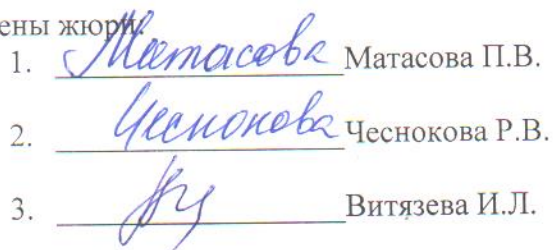 ены жюри.
1. Матасова Матасова П.В.
2. Чеснокова Чеснокова Р.В.
3. Витязева И.Л.